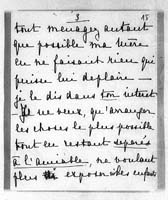 3
15
tout menager autant
que possible ma mère
en ne faisant rien qui
puisse lui deplaire —
je le dis dans ton interet
— Je ne veux, qu'arranger
les choses le plus possible
tout en restant separés
à l'amiable, ne voulant
plus exposer mes enfants